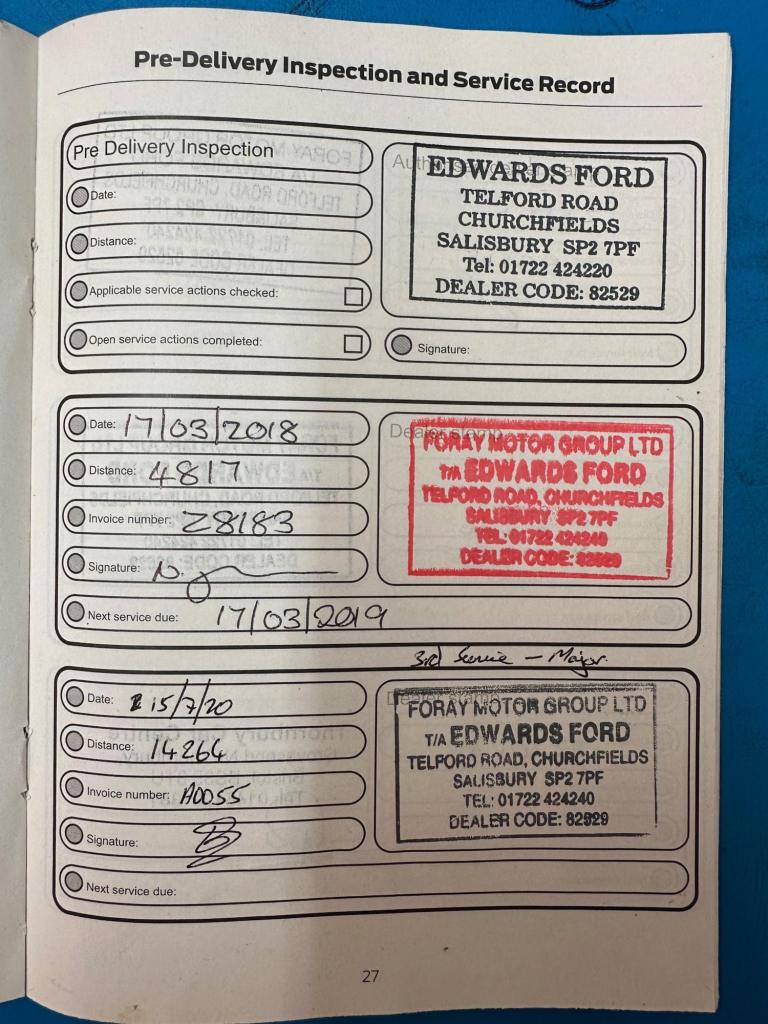 Pre-Delivery Inspection and Service Record
Pre Delivery Inspection
Date:
Distance:
Applicable service actions checked:
Open service actions completed:
EDWARDS FORD
TELFORD ROAD
CHURCHFIELDS
SALISBURY SP2 7PF
Tel: 01722 424220
DEALER CODE: 82529
Signature:
Date: 17/03/2018
Distance: 4817
Invoice number: Z8183
Signature:
Next service due: 17/03/2019
Dealer stamp
FORAY MOTOR GROUP LTD
T/A EDWARDS FORD
TELFORD ROAD, CHURCHFIELDS
SALISBURY SP2 7PF
TEL: 01722 424240
DEALER CODE: 82529
3rd Service - Major.
Date: 15/7/20
Distance: 14264
Invoice number: A0055
Signature:
Next service due:
Dealer stamp
FORAY MOTOR GROUP LTD
T/A EDWARDS FORD
TELFORD ROAD, CHURCHFIELDS
SALISBURY SP2 7PF
TEL: 01722 424240
DEALER CODE: 82529
27